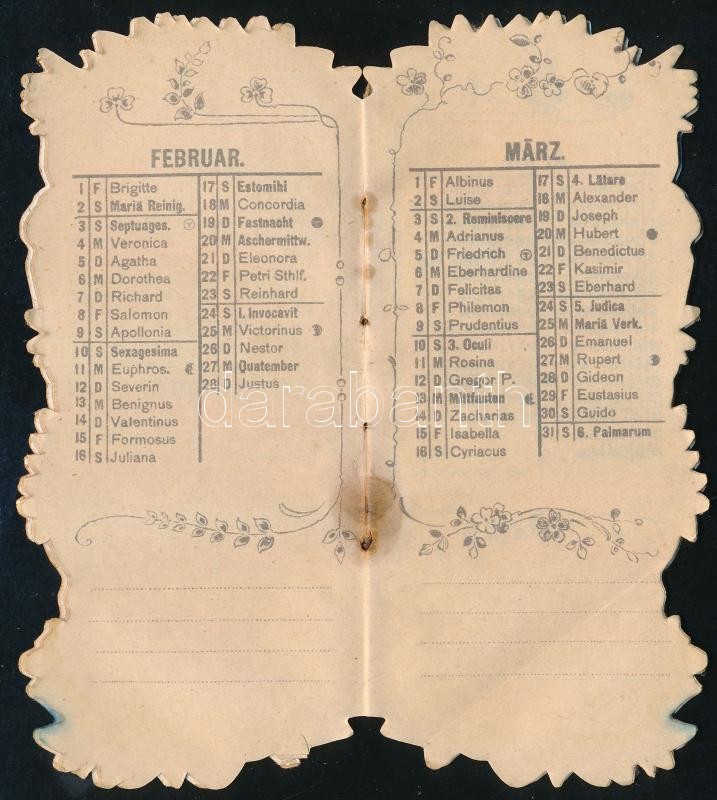 FEBRUAR.
1 F Brigitte
2 S Mariä Reinig.
3 S Septuages.
4 M Veronica
5 D Agatha
6 M Dorothea
7 D Richard
8 F Salomon
9 S Apollonia
10 S Sexagesima
11 M Euphros.
12 D Severin
13 M Benignus
14 D Valentinus
15 F Formosus
16 S Juliana
17 S Estomihi
18 M Concordia
19 D Fastnacht
20 M Aschermittw.
21 D Eleonora
22 F Petri Sthlf.
23 S Reinhard
24 S I. Invocavit
25 M Victorinus
26 D Nestor
27 M Quatember
28 D Justus
MÄRZ.
1 F Albinus
2 S Luise
3 S 2. Reminiscere
4 M Adrianus
5 D Friedrich
6 M Eberhardine
7 D Felicitas
8 F Philemon
9 S Prudentius
10 S 3. Oculi
11 M Rosina
12 D Gregor P.
13 M Mittfasten
14 D Zacharias
15 F Isabella
16 S Cyriacus
17 S 4. Lätare
18 M Alexander
19 D Joseph
20 M Hubert
21 D Benedictus
22 F Kasimir
23 S Eberhard
24 S 5. Judica
25 M Mariä Verk.
26 D Emanuel
27 M Rupert
28 D Gideon
29 F Eustasius
30 S Guido
31 S 6. Palmarum
darabanth